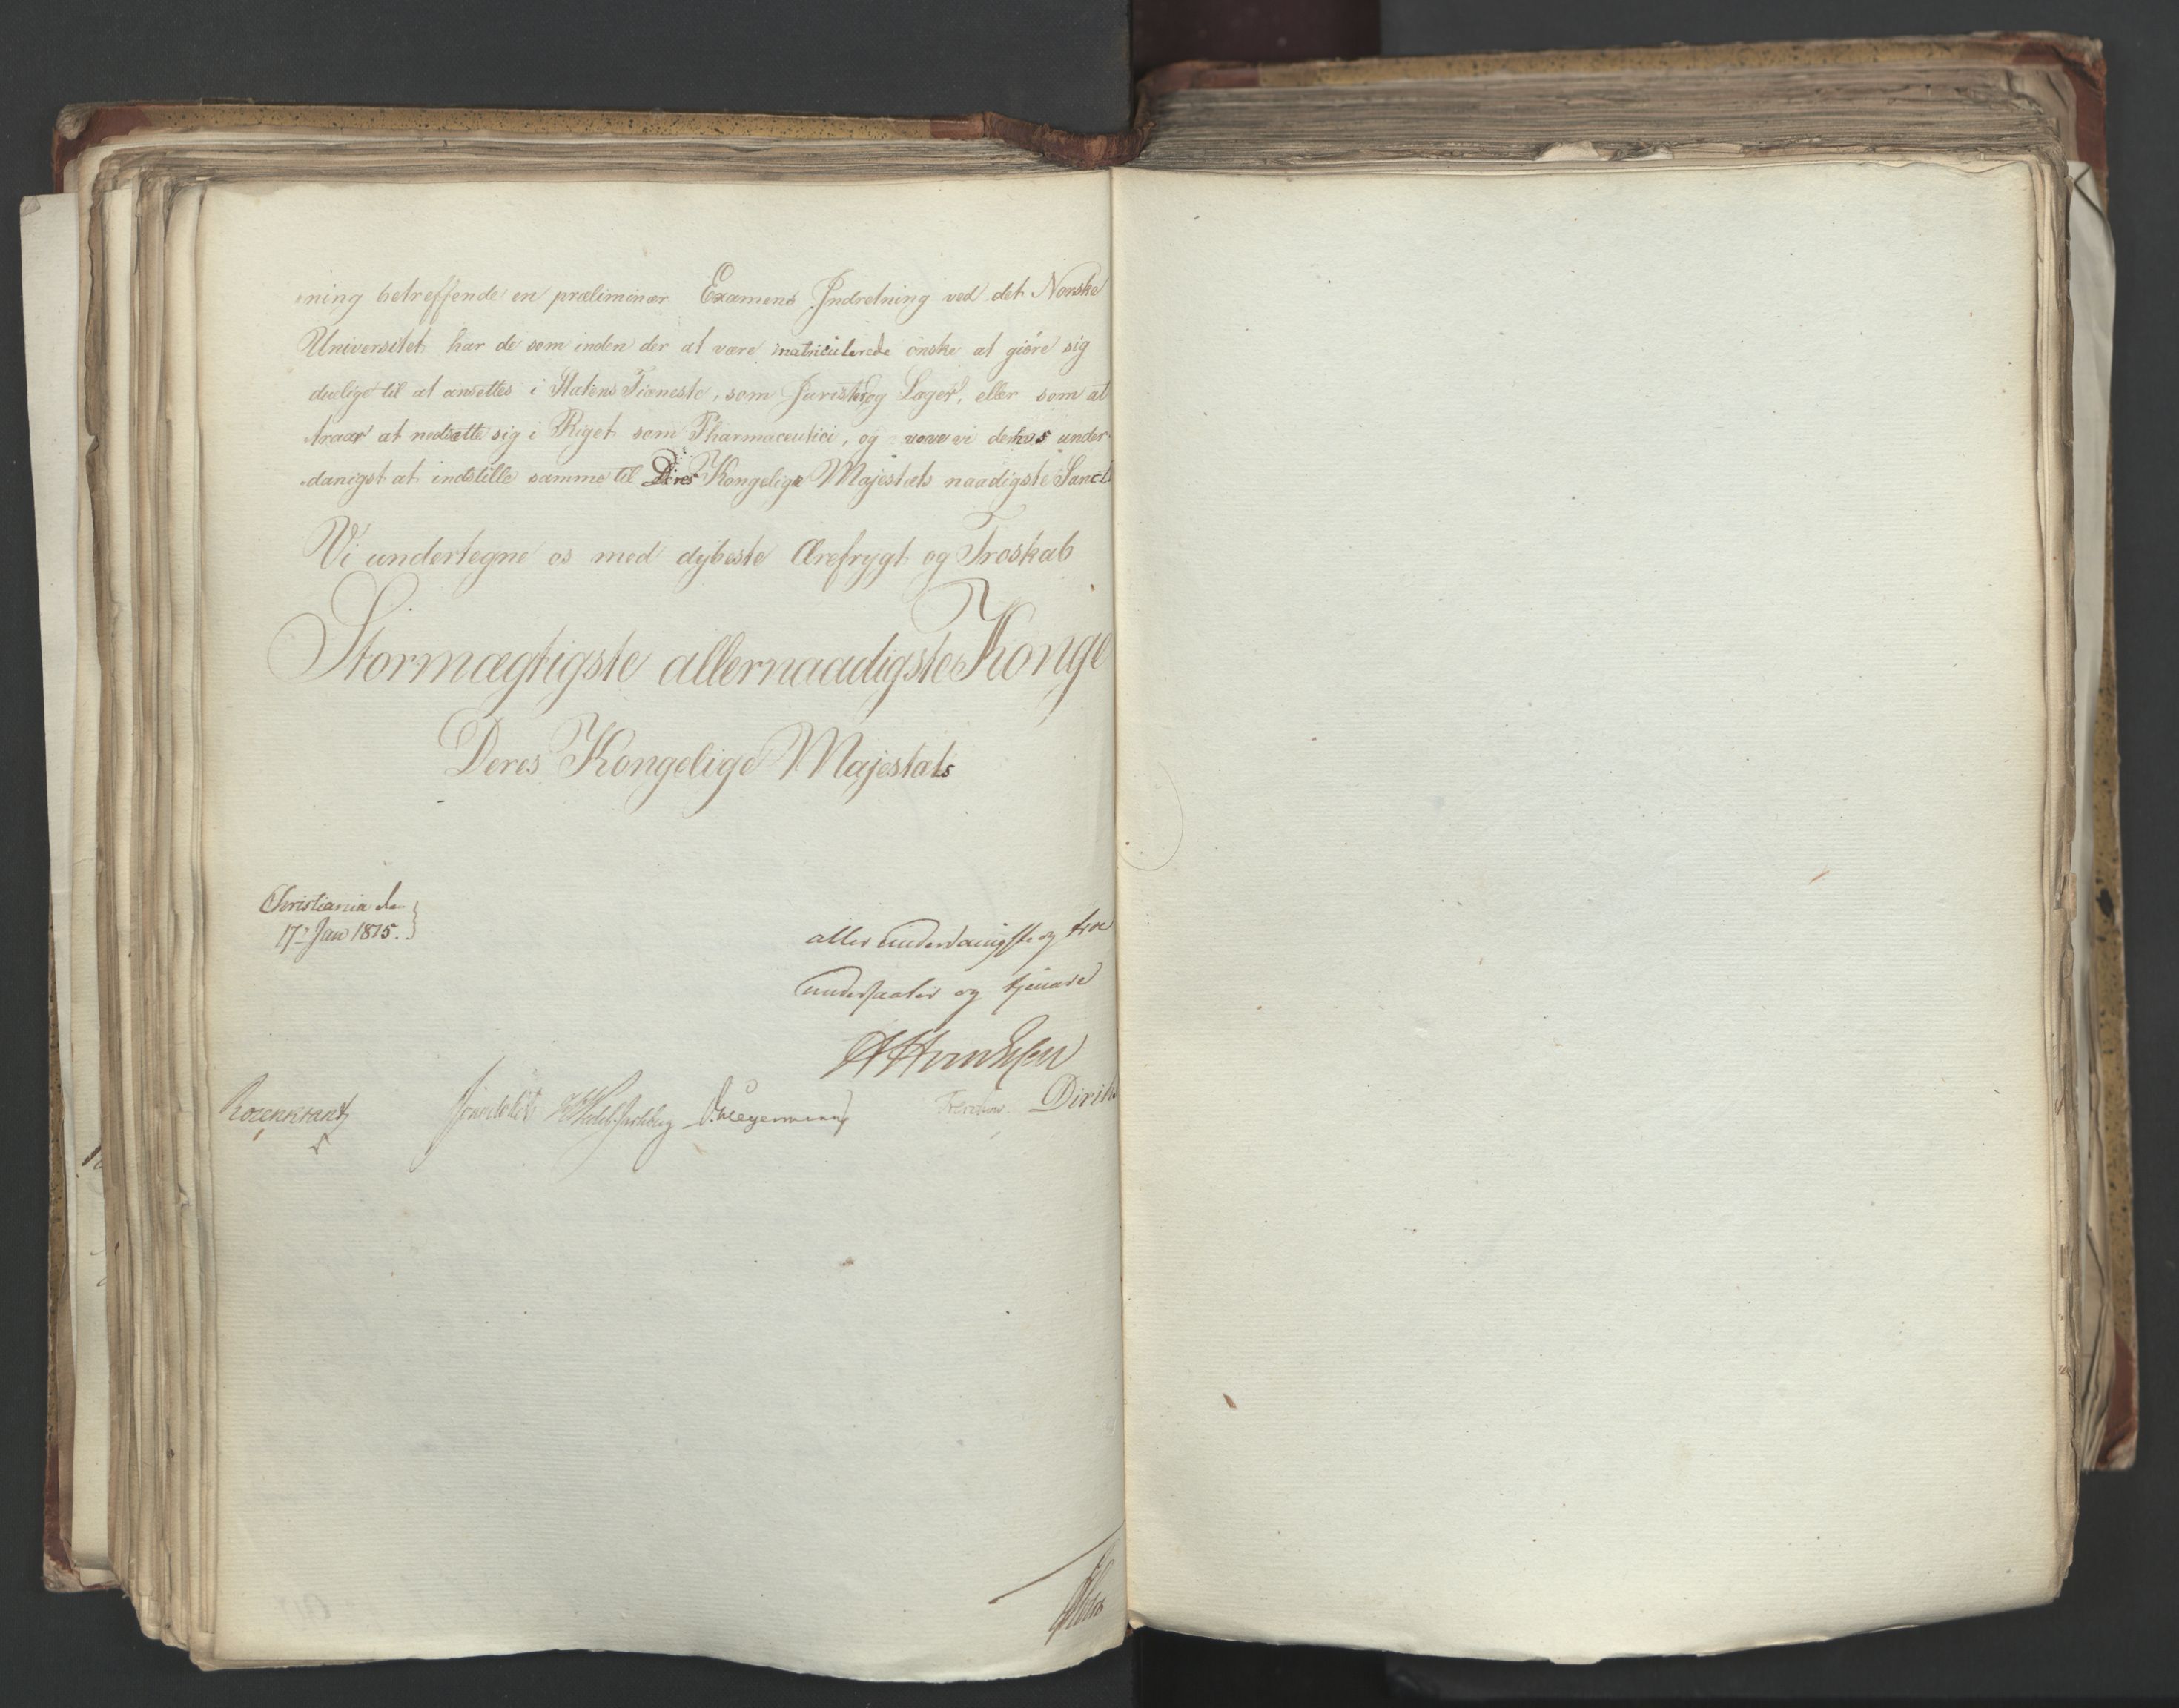 ning betreffende en præliminær Examens Indretning ved det Norske
Universitet har de som inden der at være matriculerede önske at giöre sig
duelige til at ansettes i Statens Tieneste, som Jurister og Læger, eller som at
traae at nedsætte sig i Riget som Pharmaceutici, og vove vi derhos under
danigst at indstille samme til Deres Kongelige Majestæts naadigste Sancti
Vi undertegne os med dybeste Ærefrygt og Troskab
Stormægtigste allernaadigste Konge
Deres Kongelige Majestæts
Christiania den
17 Jan 1815.
aller underdanigste og troe
undersaater og tjenere
Rosenkrantz
Treschow
Diriks